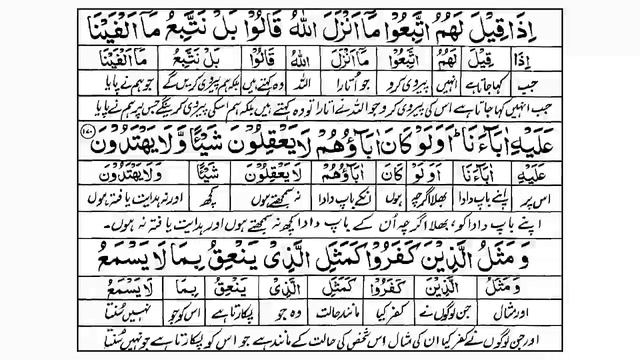 اِذَا قِيْلَ لَهُمُ اتَّبِعُوْا مَآ اَنْزَلَ اللّٰهُ قَالُوْا بَلْ نَتَّبِعُ مَآ اَلْفَيْنَا
اِذَا قِيْلَ لَهُمُ اتَّبِعُوْا مَآ اَنْزَلَ اللّٰهُ قَالُوْا بَلْ نَتَّبِعُ مَآ اَلْفَيْنَا
جب کہا جاتا ہے انہیں پیروی کرو جو اُتارا اللہ وہ کہتے ہیں بلکہ ہم پیروی کریں گے جو ہم نے پایا
جب انہیں کہا جاتا ہے اس کی پیروی کرو جو اللہ نے اتارا تو وہ کہتے ہیں بلکہ ہم اسکی پیروی کرینگے جس پر ہم نے پایا
عَلَيْهِ اٰبَآءَنَا ؕ اَوَلَوْ كَانَ اٰبَآؤُهُمْ لَا يَعْقِلُوْنَ شَيْـًٔا وَّلَا يَهْتَدُوْنَ ﴿۱۷۰﴾
عَلَيْهِ اٰبَآءَنَا اَوَلَوْ كَانَ اٰبَآؤُهُمْ لَا يَعْقِلُوْنَ شَيْـًٔا وَّلَا يَهْتَدُوْنَ
اس پر اپنے باپ دادا بھلا اگرچہ ہوں انکے باپ دادا نہ سمجھتے ہوں کچھ اور نہ ہدایت یافتہ ہوں
اپنے باپ دادا کو، بھلا اگرچہ اُن کے باپ دادا کچھ نہ سمجھتے ہوں اور ہدایت یافتہ نہ ہوں۔
وَ مَثَلُ الَّذِيْنَ كَفَرُوْا كَمَثَلِ الَّذِيْ يَنْعِقُ بِمَا لَا يَسْمَعُ
وَ مَثَلُ الَّذِيْنَ كَفَرُوْا كَمَثَلِ الَّذِيْ يَنْعِقُ بِمَا لَا يَسْمَعُ
اور مثال جن لوگوں نے کفر کیا مانند حالت وہ جو پکارتا ہے اس کو جو نہیں سُنتا
اور جن لوگوں نے کفر کیا ان کی مثال اس شخص کی حالت کے مانند ہے جو اس کو پکارتا ہے جو نہیں سُنتا